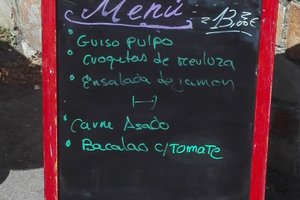 Menú
13,00€
• Guiso pulpo
• Croquetas de merluza
• Ensalada de jamon
• Carne Asado
• Bacalao c/TOMATE